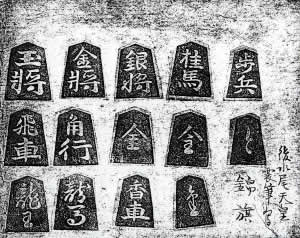 玉將
金將
銀將
桂馬
歩兵
飛車
角行
全
と
龍王
龍馬
香車
後水尾天皇
錦旗